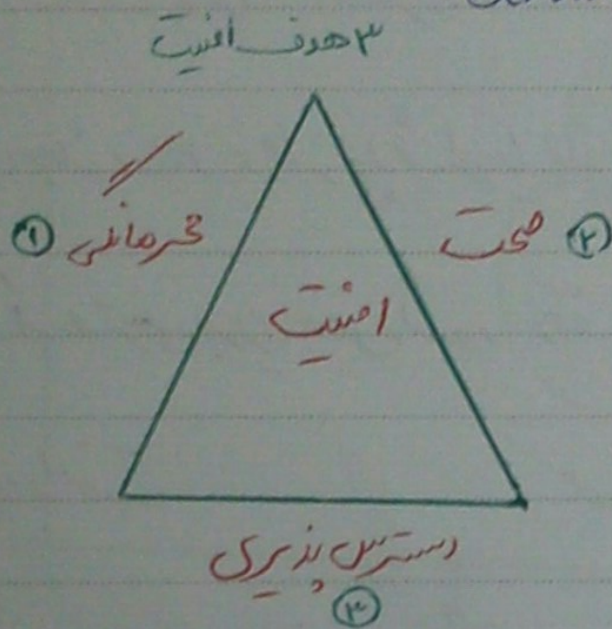 ۳ هدف امنیت
① محرمانگی
② صحت
امنیت
دسترس پذیری
③